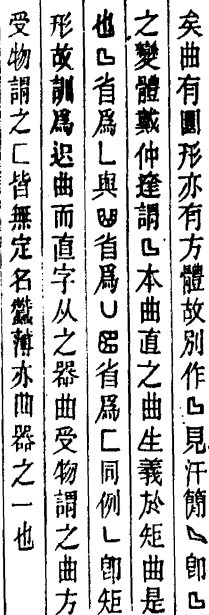 矣曲有圓形亦有方體故別作㔫見汗簡㇄卽㔫
之變體戴仲達謂㔫本曲直之曲生義於矩曲是
也㔫省爲㇄與𠙴省爲凵㗊省爲匚同例㇄卽矩
形故訓爲迟曲而直字从之器曲受物謂之曲方
受物謂之匚皆無定名蠶薄亦曲器之一也